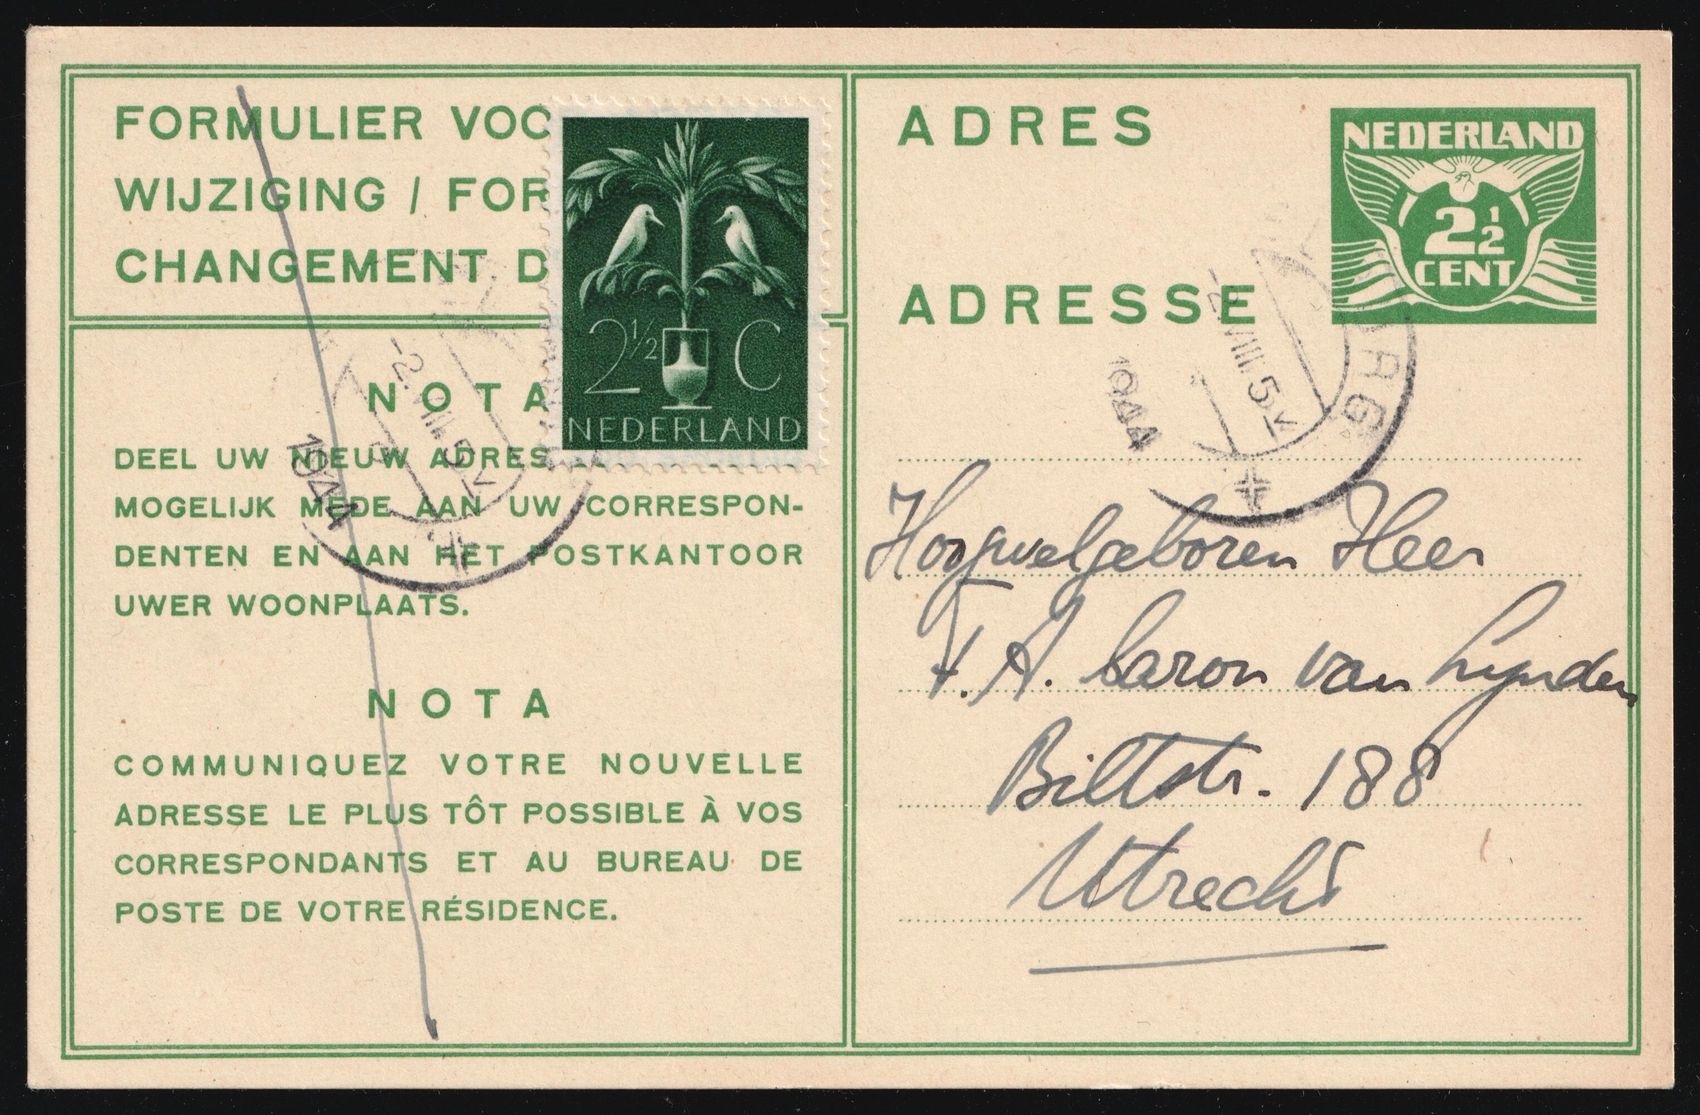 FORMULIER VOO
WIJZIGING / FOR
CHANGEMENT D
2½ C
NEDERLAND
NOTA
DEEL UW NIEUW ADRES
MOGELIJK MEDE AAN UW CORRESPON-
DENTEN EN AAN HET POSTKANTOOR
UWER WOONPLAATS.
NOTA
COMMUNIQUEZ VOTRE NOUVELLE
ADRESSE LE PLUS TÔT POSSIBLE À VOS
CORRESPONDANTS ET AU BUREAU DE
POSTE DE VOTRE RÉSIDENCE.
-2.VIII.5 V
1944
ADRES
ADRESSE
NEDERLAND
2½
CENT
-2.VIII.5 V
1944
Hoogwelgeboren Heer
F. A. baron van Lynden
Biltstr. 188
Utrecht